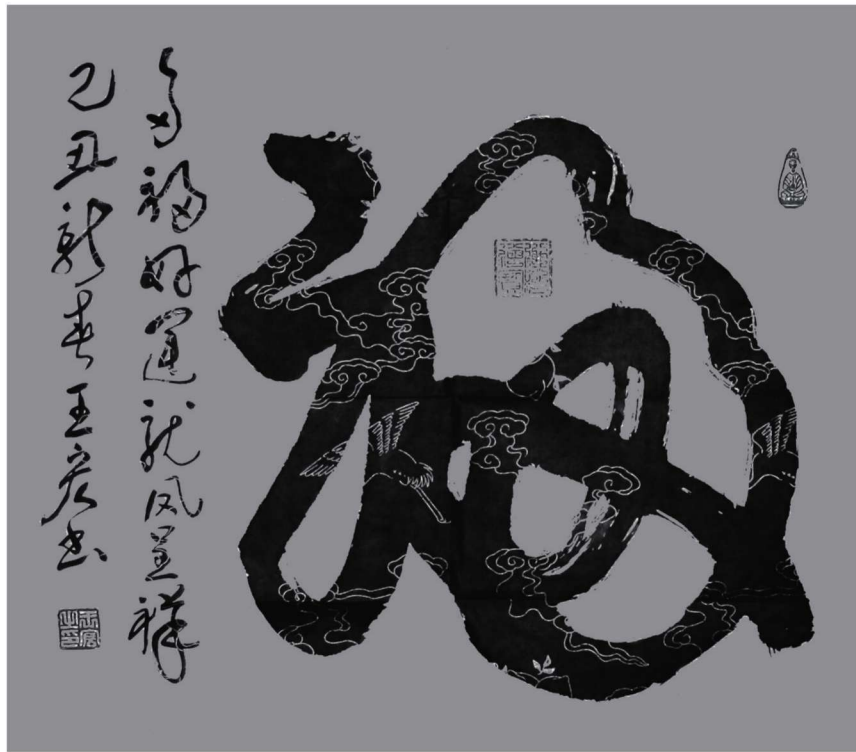 福
多福好運龍凤呈祥
己丑新春王宏书